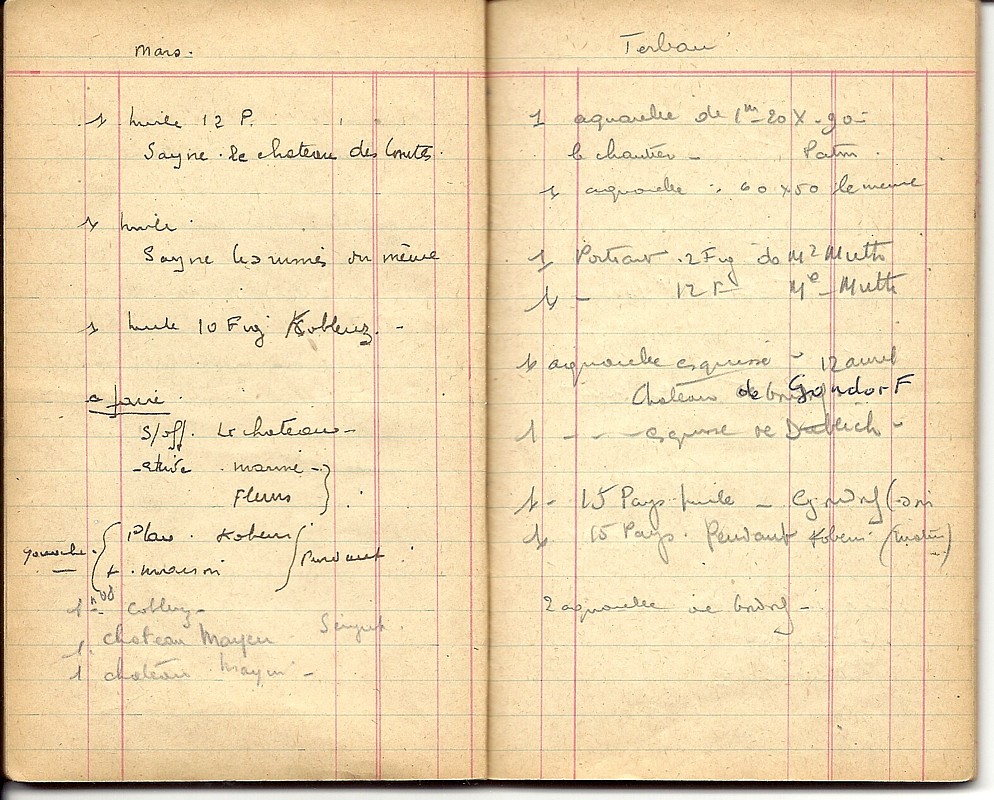 Mars.
1 huile 12 P.
Sayne. le chateau des Comtes.
1 huile
Sayne les ruines ou même
1 huile 10 Fig Koblenz. -
a faire.
S/off. Le chateau -
marine -
Fleurs
gouache.
Plan. Koblenz
+ maison
Pendant
1 Coblenz -
1. chateau Mayen
1 chateau Mayen -
Terbau
1 aquarelle de 1m-20 X -90-
le chantier - Patm.
1 aquarelle : 60 x 50 le meme
1 Portrait . 2 Fig de Mr Muth
1 - 12 F Me - Muth
1 aquarelle esquisse - 12 avril
Chateau de GondorF
1 - - - esquisse de Dublich -
1 - 15 Pays huile - Gondorf
1 15 Pays. Pendant Koblenz (matin)
2 aquarelle de Gondorf -